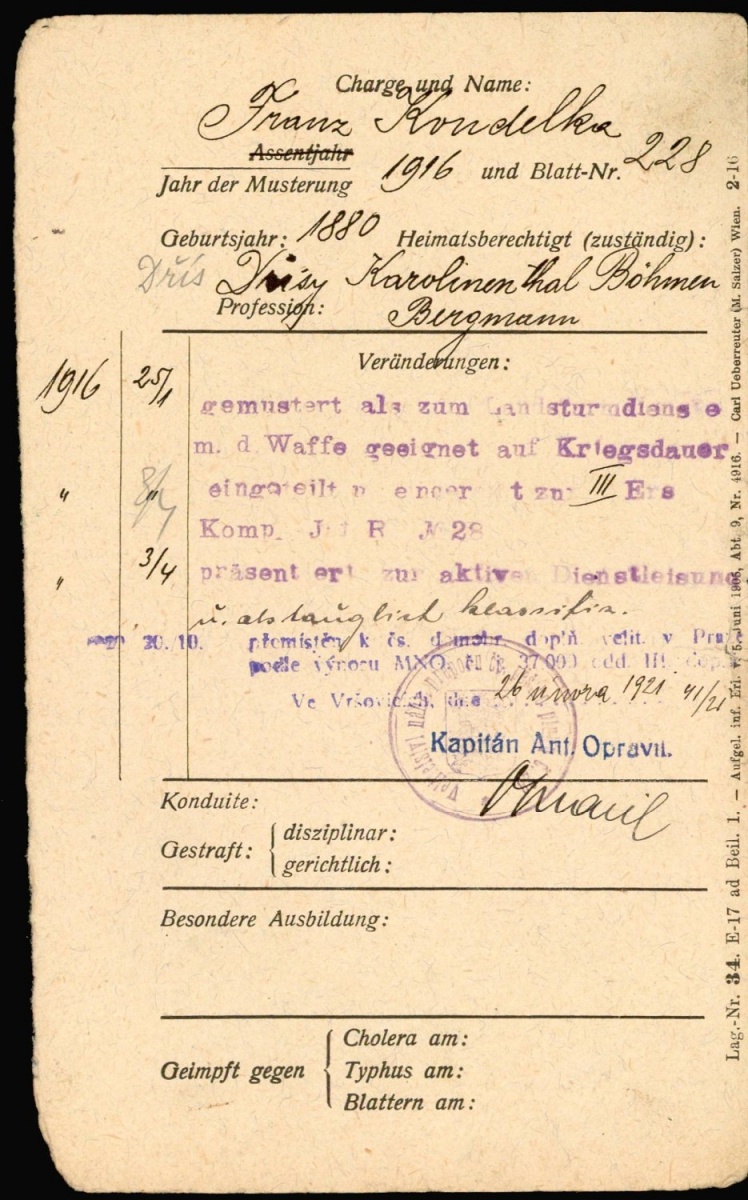 Charge und Name:
Franz Kondelka
Assentjahr
Jahr der Musterung 1916 und Blatt-Nr. 228
Geburtsjahr: 1880 Heimatsberechtigt (zuständig):
Dřís Drisy Karolinenthal Böhmen
Profession: Bergmann
Veränderungen:
1916 25/1 gemustert als zum Landsturmdienste
m. d Waffe geeignet auf Kriegsdauer
" eingeteilt zu III Ers
Komp. J R № 28
" 3/4 präsentiert zur aktiven Dienstleisung
u. als tauglich klassifiz.
20./10. přemístěn k čs. doplň velit. v
podle výnosu MNO. čj. 37.000 odd. III. dopl
Ve Vršovicích, dne 26 února 1921 41/21
Kapitán Ant. Opravil.
Opravil
Konduite:
Gestraft: disziplinar:
gerichtlich:
Besondere Ausbildung:
Geimpft gegen Cholera am:
Typhus am:
Blattern am:
Lag.-Nr. 34. E-17 ad Beil. 1. — Aufgel. inf. Erl. v. 5. Juni 1906, Abt. 9, Nr. 4916. — Carl Ueberreuter (M. Salzer) Wien. 2-16